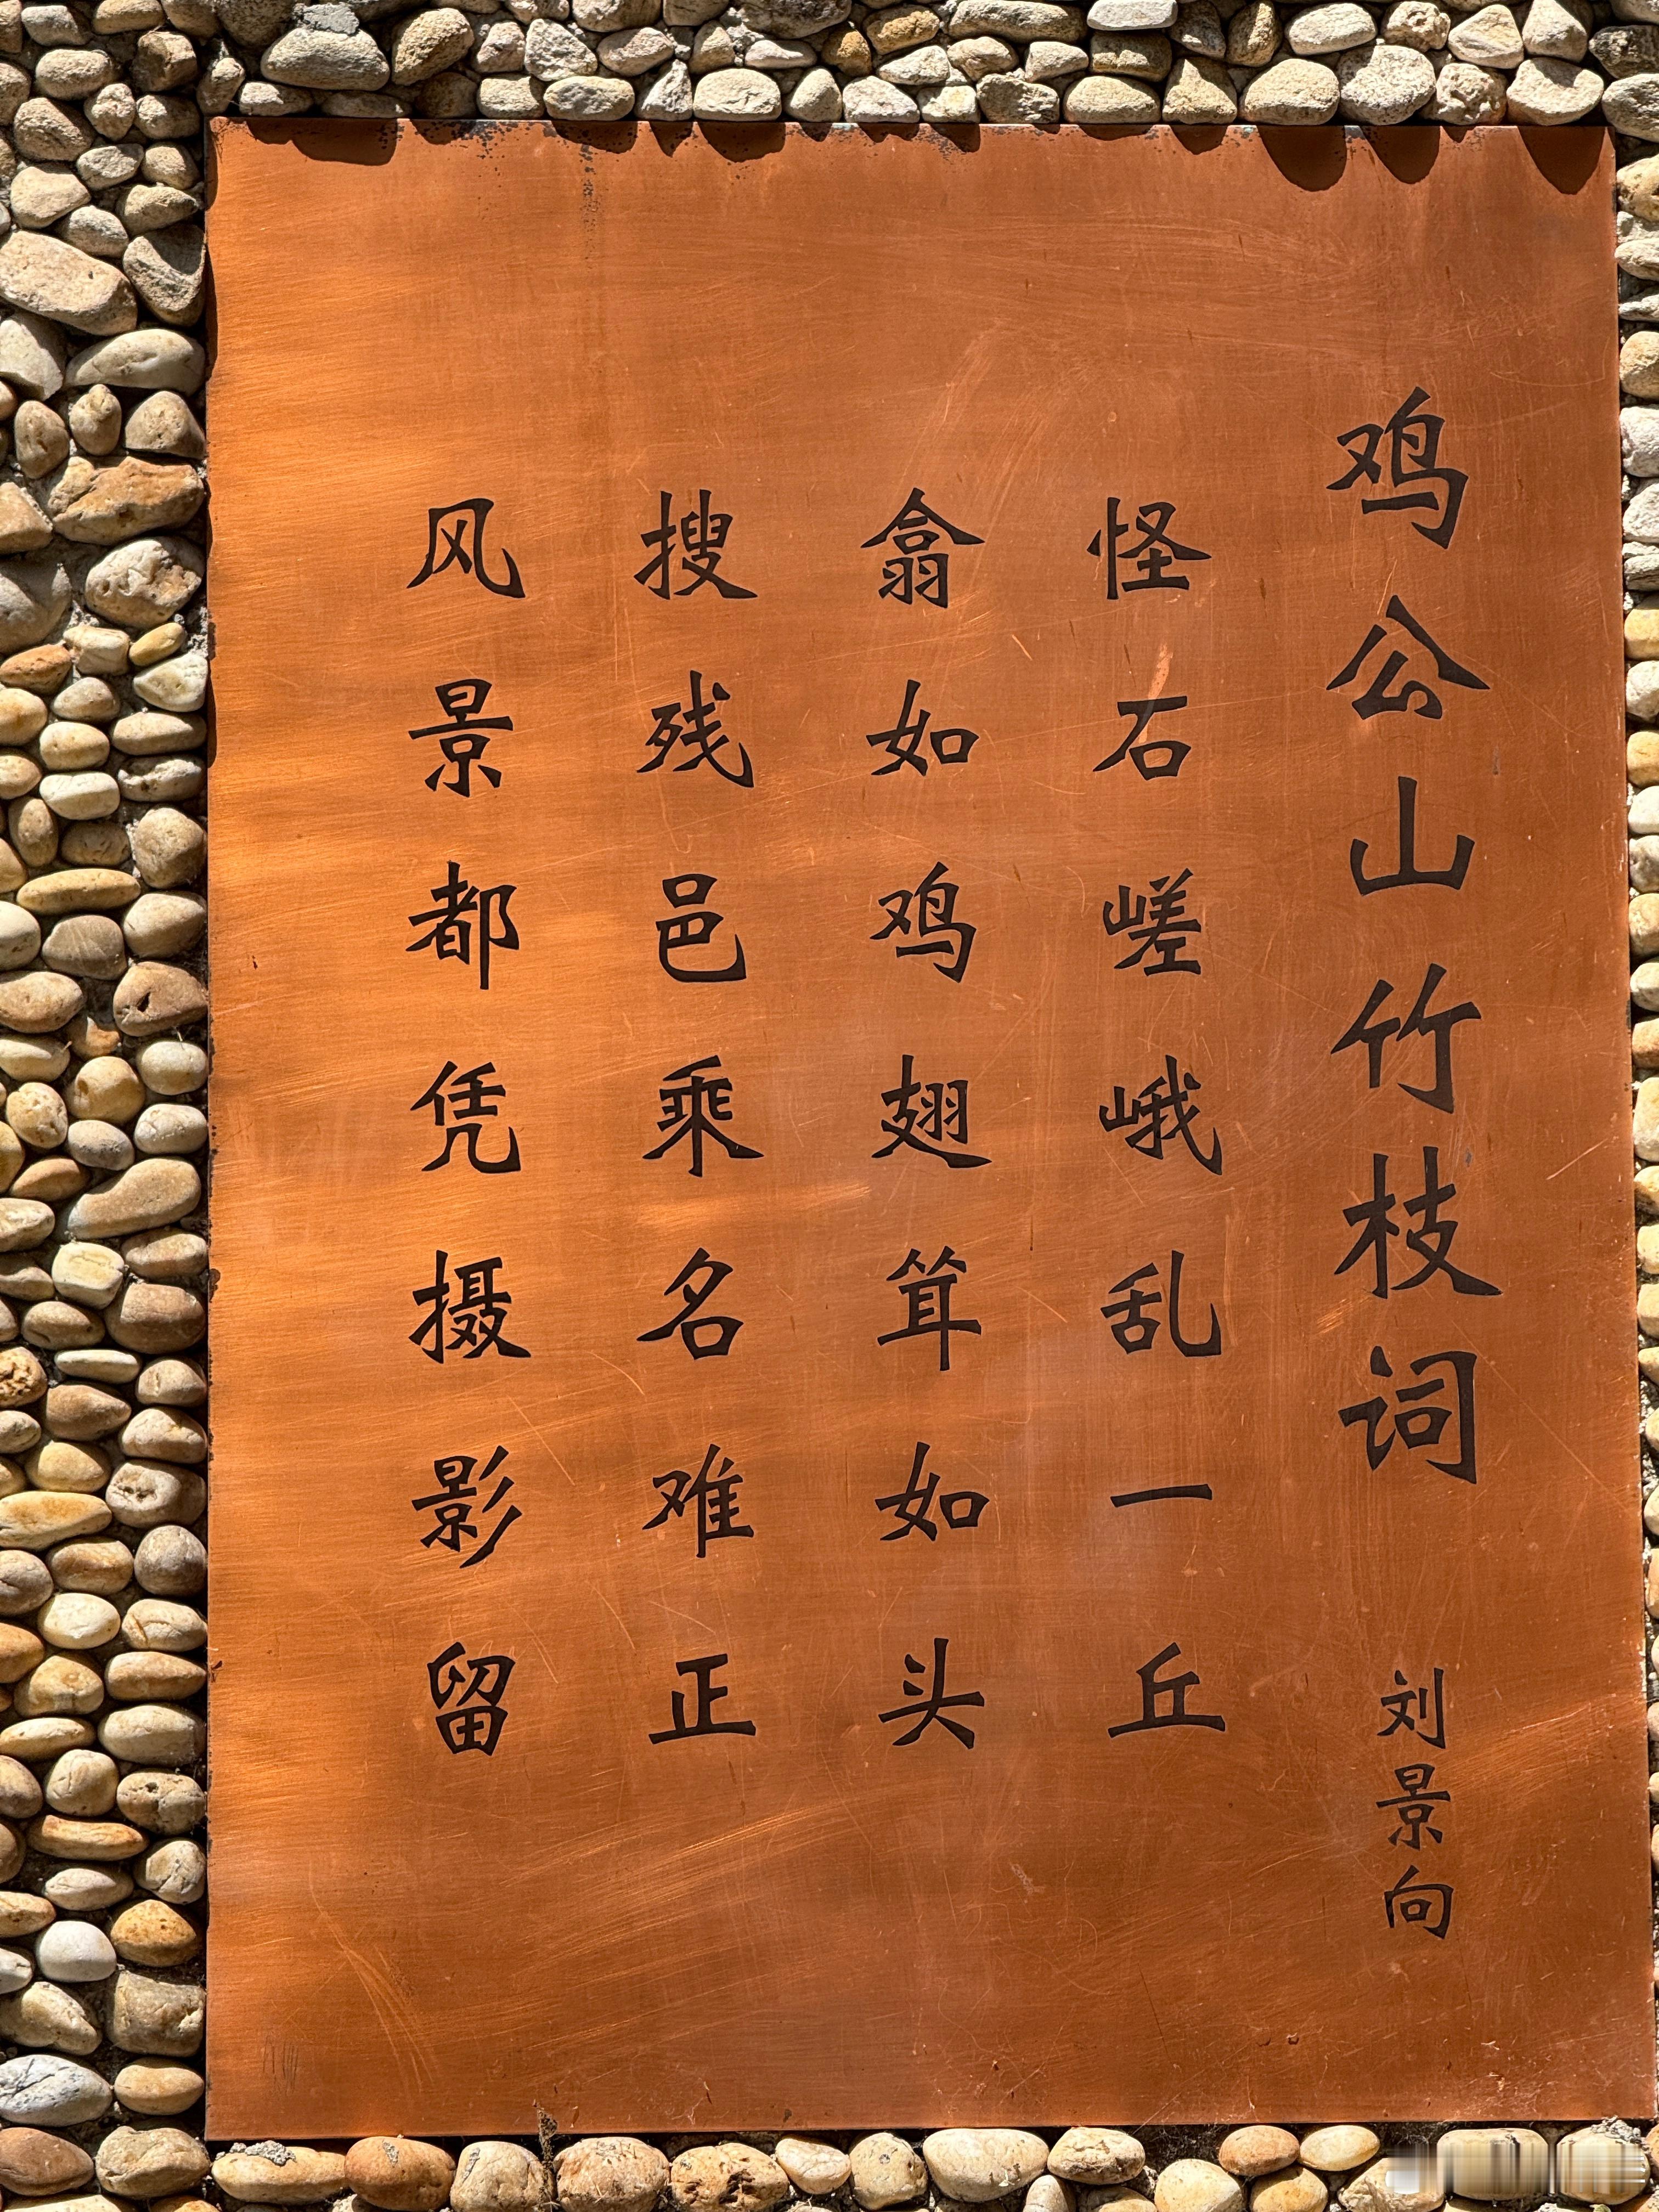 鸡公山竹枝词 刘景向
怪石嵯峨乱一丘
翕如鸡翅耸如头
搜残邑乘名难正
风景都凭摄影留